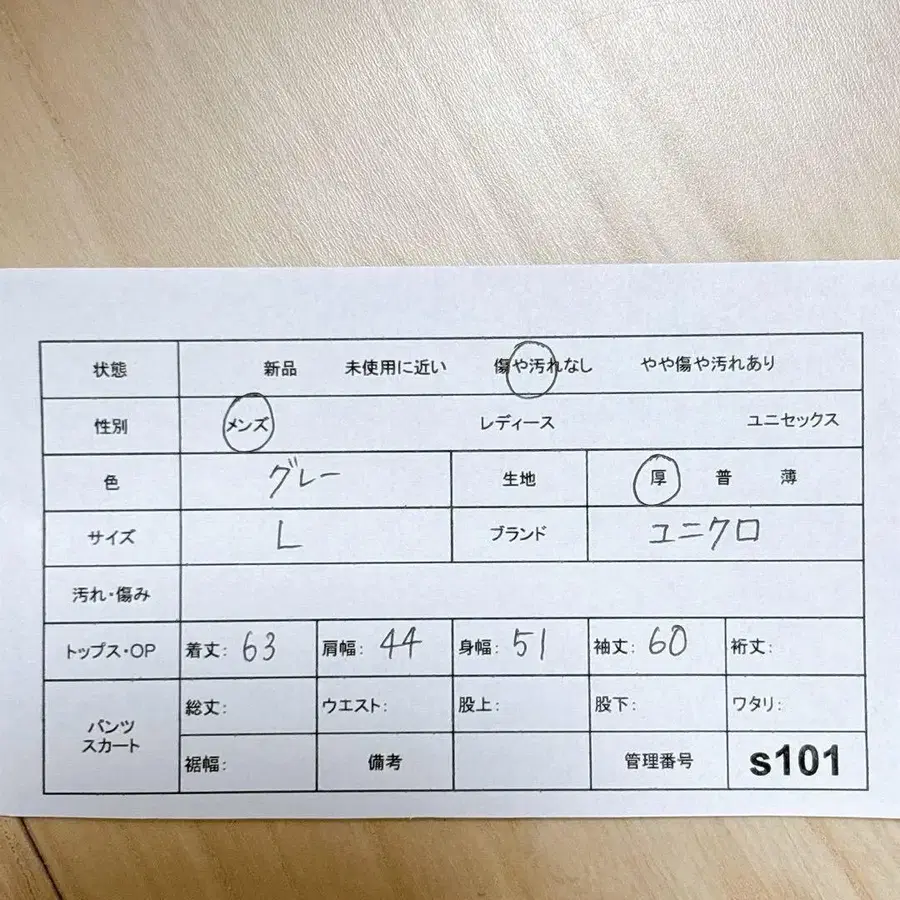 状態 新品 未使用に近い 傷や汚れなし やや傷や汚れあり
性別 メンズ レディース ユニセックス
色 グレー 生地 厚 普 薄
サイズ L ブランド ユニクロ
汚れ・傷み
トップス・OP 着丈: 63 肩幅: 44 身幅: 51 袖丈: 60 裄丈:
パンツ
スカート
総丈: ウエスト: 股上: 股下: ワタリ:
裾幅: 備考 管理番号 s101